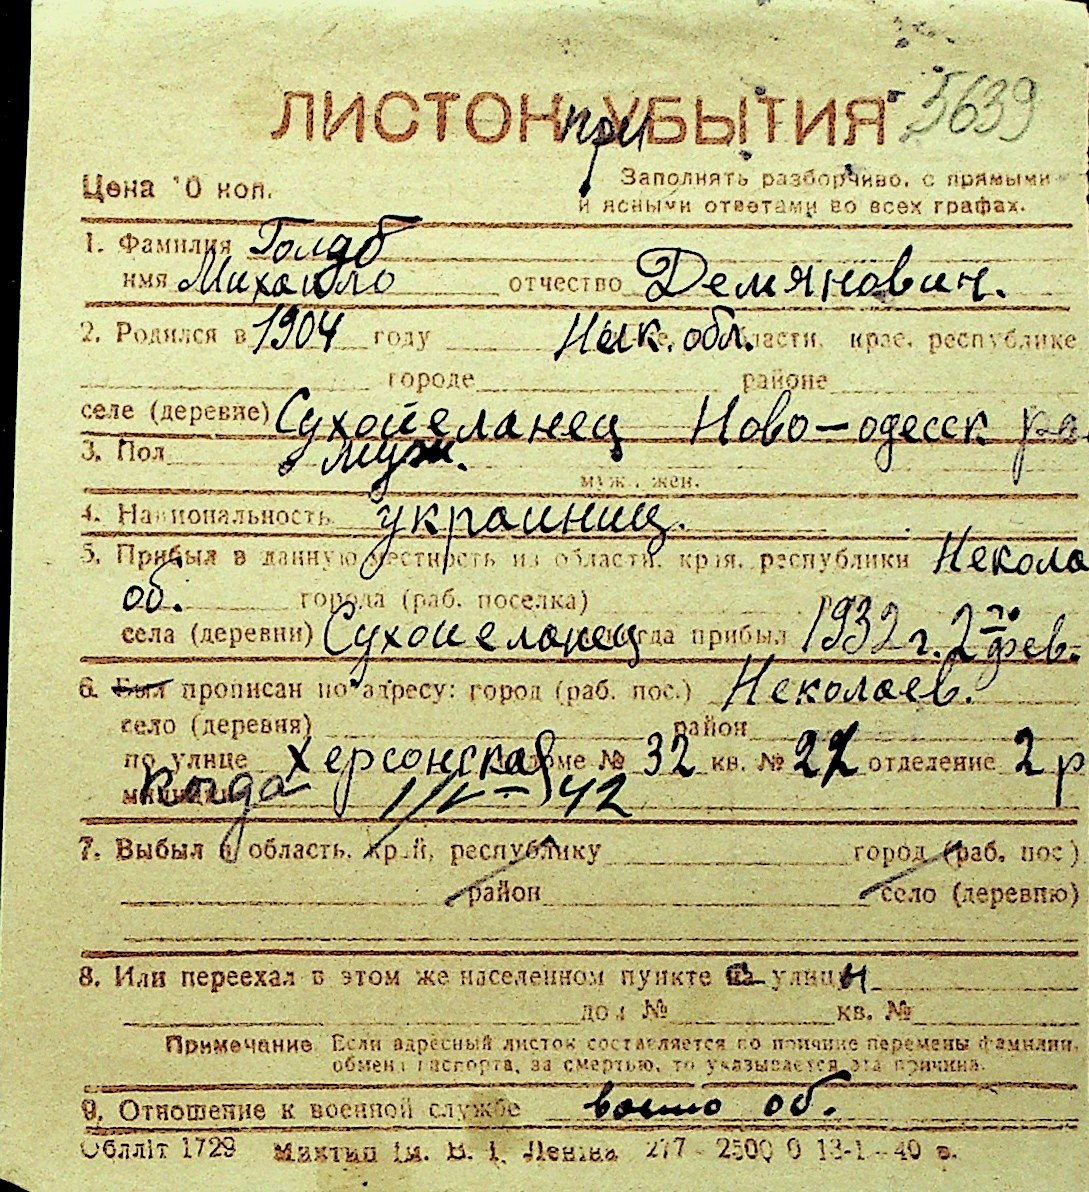 ЛИСТОК УБЫТИЯ при 5639
Цена 10 коп.
Заполнять разборчиво, с прямыми
и ясными ответами во всех графах.
1. Фамилия Голуб
имя Михайло отчество Демянович.
2. Родился в 1904 году Ник. обл. области, крае, республике
городе районе
селе (деревне) Сухойеланец Ново-одесск ра
3. Пол муж.
муж., жен.
4. Национальность украиниц.
5. Прибыл в данную местность из области, края, республики Некола
об. города (раб. поселка)
села (деревни) Сухоиеланец когда прибыл 1932 г. 2го фев.
6. Был прописан по адресу: город (раб. пос.) Неколаев.
село (деревня) район
по улице Херсонская доме № 32 кв. № 22 отделение 2 р
милиции когда 1/V-42
7. Выбыл в область, край, республику город (раб. пос)
район село (деревню)
8. Или переехал в этом же населенном пункте с улицы
дом № кв. №
Примечание. Если адресный листок составляется по причине перемены фамилии,
обмена паспорта, за смертью, то указывается эта причина.
9. Отношение к военной службе воено об.
Обллiт 1729 Миктип iм. В. I. Ленiна 277 - 2500 0 13-1-40 в.